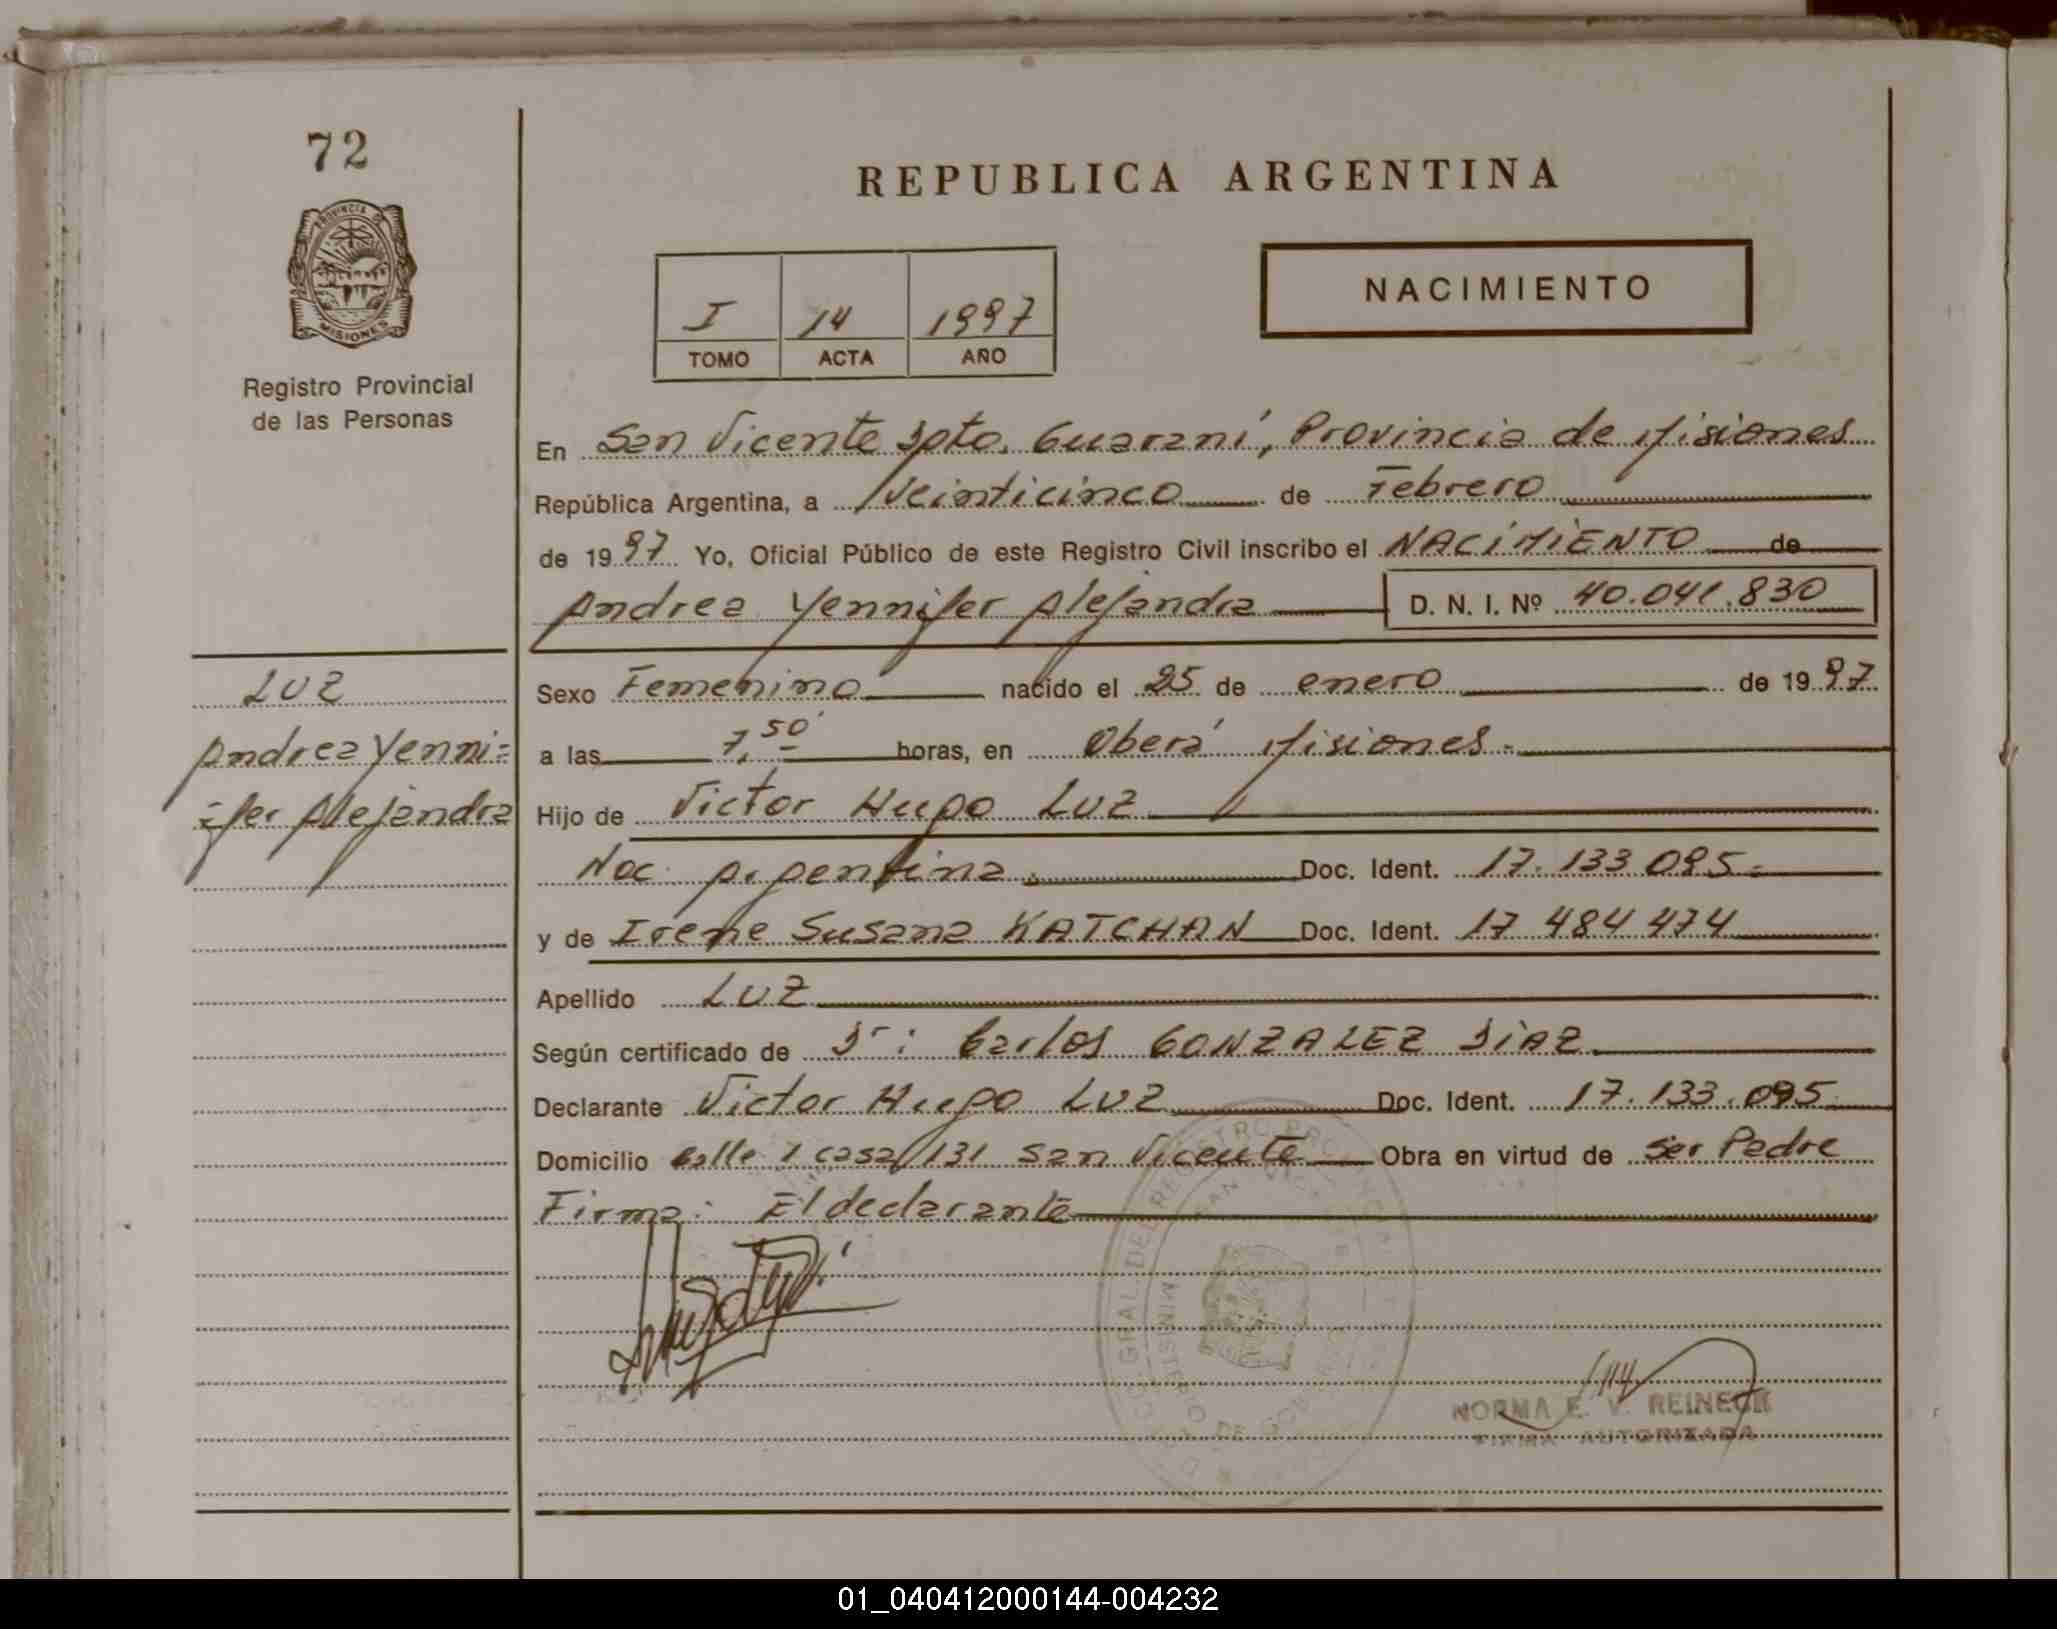 72
PROVINCIA DE
MISIONES
Registro Provincial
de las Personas
REPUBLICA ARGENTINA
I 14 1997
TOMO ACTA AÑO
NACIMIENTO
En San Vicente Dpto. Guaraní, Provincia de Misiones
República Argentina, a Veinticinco de Febrero
de 1997 Yo, Oficial Público de este Registro Civil inscribo el NACIMIENTO de
Andrea Yennifer Alejandra D. N. I. Nº 40.041.830
LUZ
Andrea Yenni=
=fer Alejandra
Sexo Femenino nacido el 25 de enero de 1997
a las 7,50 horas, en Oberá Misiones.
Hijo de Victor Hugo LUZ
Nac. Argentina. Doc. Ident. 17.133.095.
y de Irene Susana KATCHAN Doc. Ident. 17 484 474
Apellido LUZ
Según certificado de Dr: Carlos GONZALEZ DIAZ
Declarante Victor Hugo LUZ Doc. Ident. 17.133.095
Domicilio Calle 1 casa 131 San Vicente Obra en virtud de Ser Padre
Firma: El declarante
NORMA E. V. REINECK
FIRMA AUTORIZADA
01_040412000144-004232